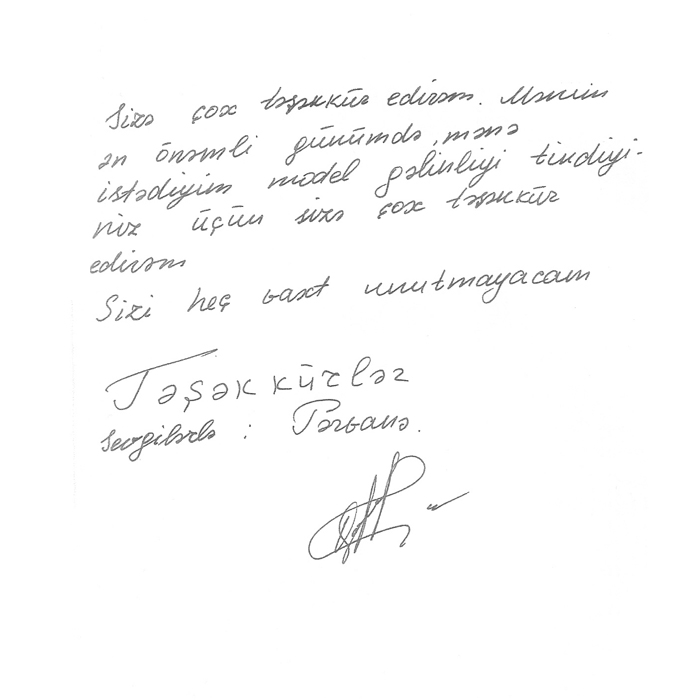 Sizə çox təşəkkür edirəm. Mənim
ən önəmli günümdə, mənə
istədiyim model gəlinliyi tikdiyi-
niz üçün sizə çox təşəkkür
edirəm
Sizi heç vaxt unutmayacam
Təşəkkürlər
Sevgilərlə : Pərvanə.